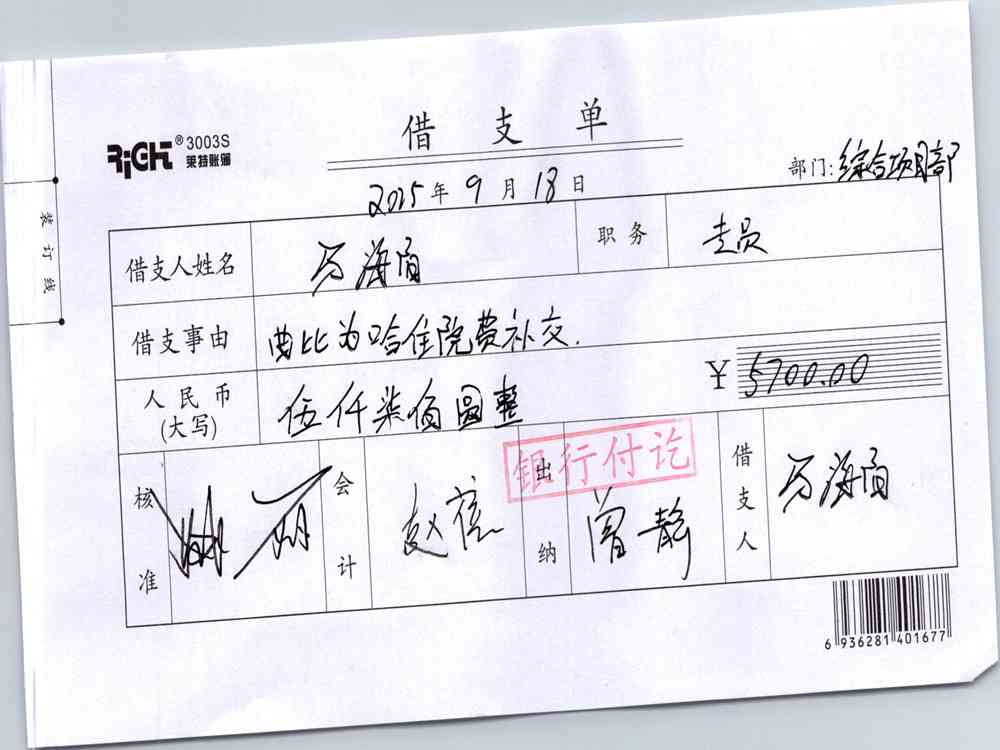 借支单
RiGHT ® 3003S
莱特账簿
2025年9月18日
部门:综合项目部
装订线
借支人姓名 万海甬 职务 专员
借支事由 曲比为哈住院费补交.
人民币(大写) 伍仟柒佰圆整 ¥ 5700.00
银行付讫
核准 会计 赵 出纳 曾静 借支人 万海
6 936281 401677